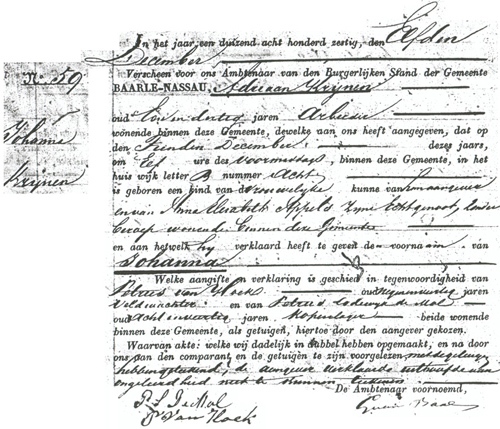 In het jaar een duizend acht honderd zestig, den Elfden
December
Verscheen voor ons Ambtenaar van den Burgerlijken Stand der Gemeente
No. 59
BAARLE-NASSAU, Adriaan Krijnen
oud jaren Arbeider
wonende binnen deze Gemeente, dewelke aan ons heeft aangegeven, dat op
den Tienden December dezes jaars,
Johanna
om Elf ure des voormiddags, binnen deze Gemeente, in het
Krijnen
huis wijk letter B nummer Acht
is geboren een kind van vrouwelijke kunne van hem aangever
en van Anna Elisabeth Appels zyne Echtgenoot, zonder
beroep wonende binnen deze Gemeente
en aan hetwelk hy verklaard heeft te geven den voornaam van
Johanna
Welke aangifte en verklaring is geschied in tegenwoordigheid van
Petrus van Hoek oud jaren
Veldwachter en van Petrus Lodewyk de Mol
oud achtenveertig jaren beide wonende
binnen deze Gemeente, als getuigen, hiertoe door den aangever gekozen.
Waarvan akte: welke wij dadelijk in dubbel hebben opgemaakt, en na door
ons aan den comparant en de getuigen te zijn voorgelezen met de getuigen
hebben geteekend, de aangever verklaarde uit hoofde van
ongeleerdheid niet te kunnen teekenen.
De Ambtenaar voornoemd,
P. L. DeMol
P Van Hoek